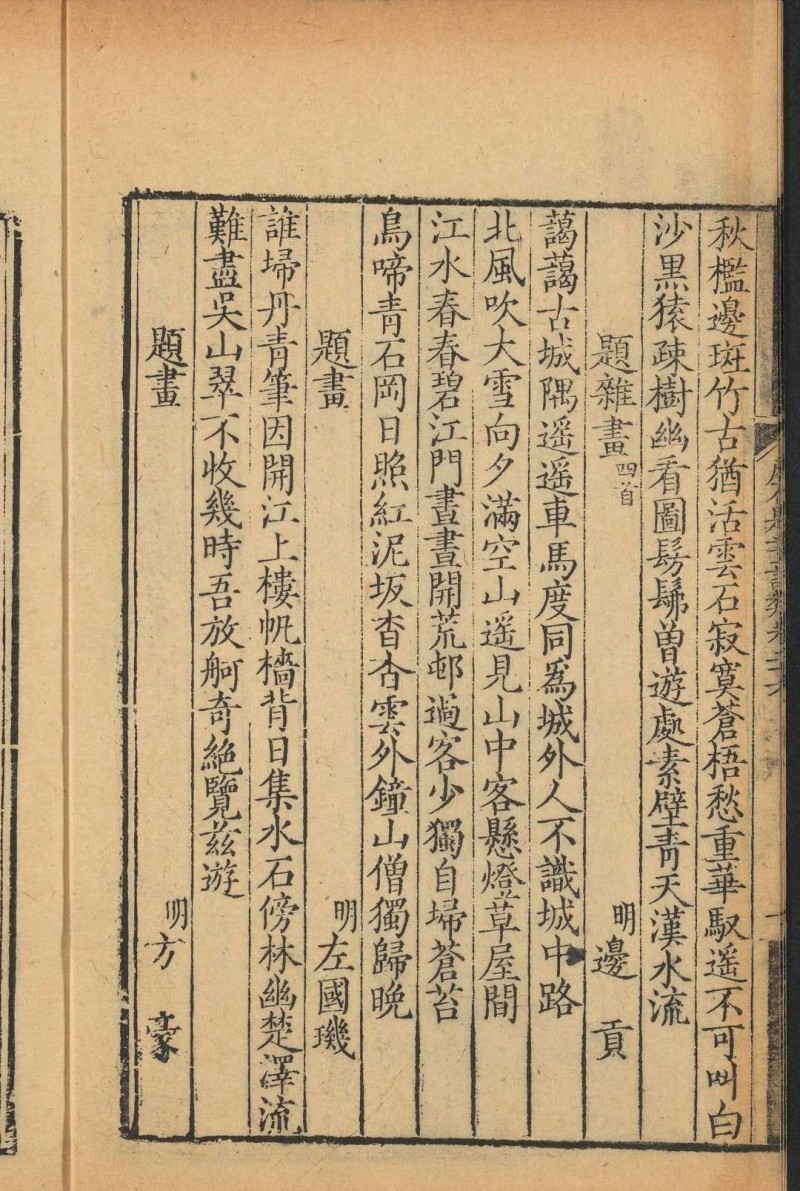 秋檻邊斑竹古猶活雲石寂寞蒼梧愁重華馭遥不可叫白
沙黒猿疎樹幽看圖髣髴曽遊處素壁青天漢水流
題雜畫四首 明邊貢
藹藹古城隅遥遥車馬度同爲城外人不識城中路
北風吹大雪向夕滿空山遥見山中客懸燈草屋間
江水春春碧江門晝晝開荒邨過客少獨自埽蒼苔
鳥啼青石岡日照紅泥坂杳杳雲外鐘山僧獨歸晩
題畫 明左國璣
誰埽丹青筆因開江上樓帆檣背日集水石傍林幽楚澤流
難盡吳山翠不收幾時吾放舸奇絶覽兹遊
題畫 明方豪